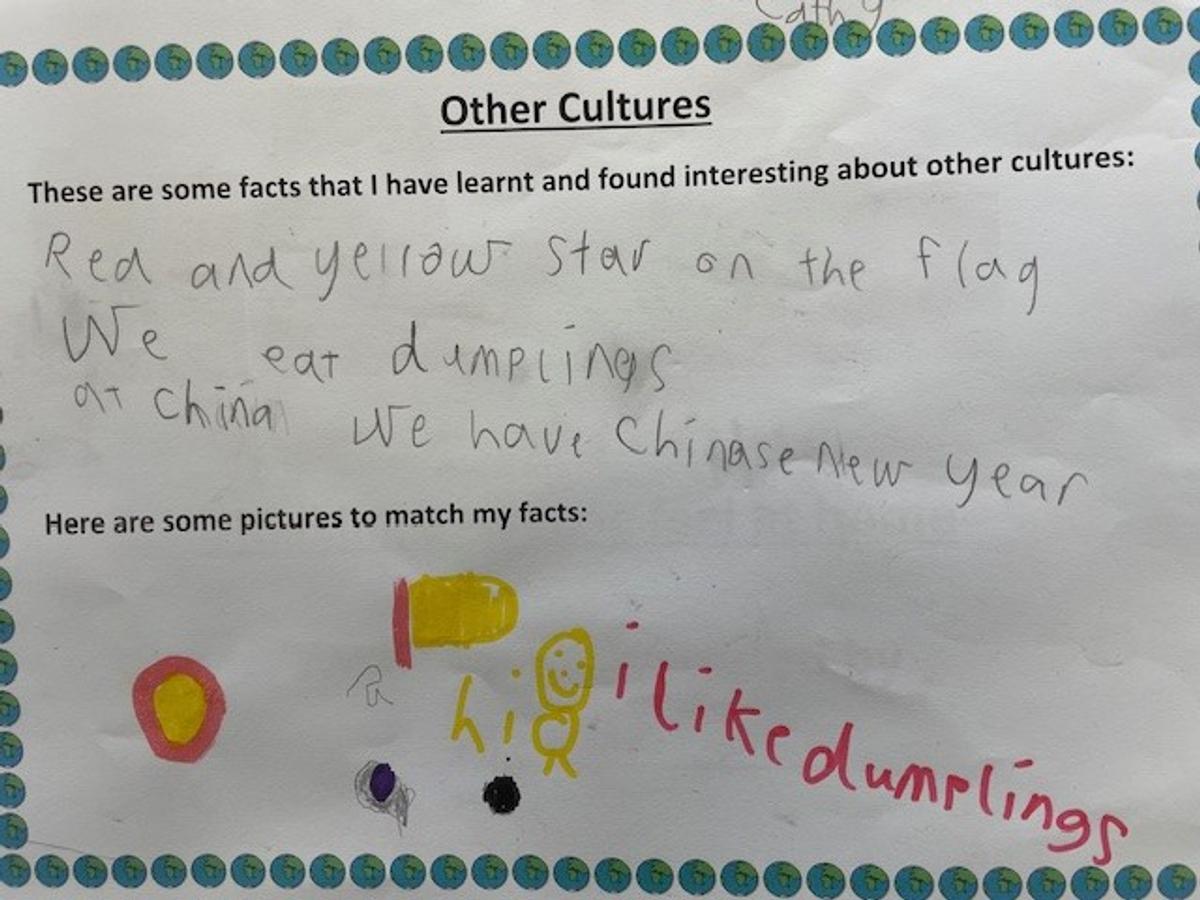 Cathy
Other Cultures
These are some facts that I have learnt and found interesting about other cultures:
Red and yellow star on the flag
We eat dumplings
at China We have Chinase New year
Here are some pictures to match my facts:
hi i like dumplings